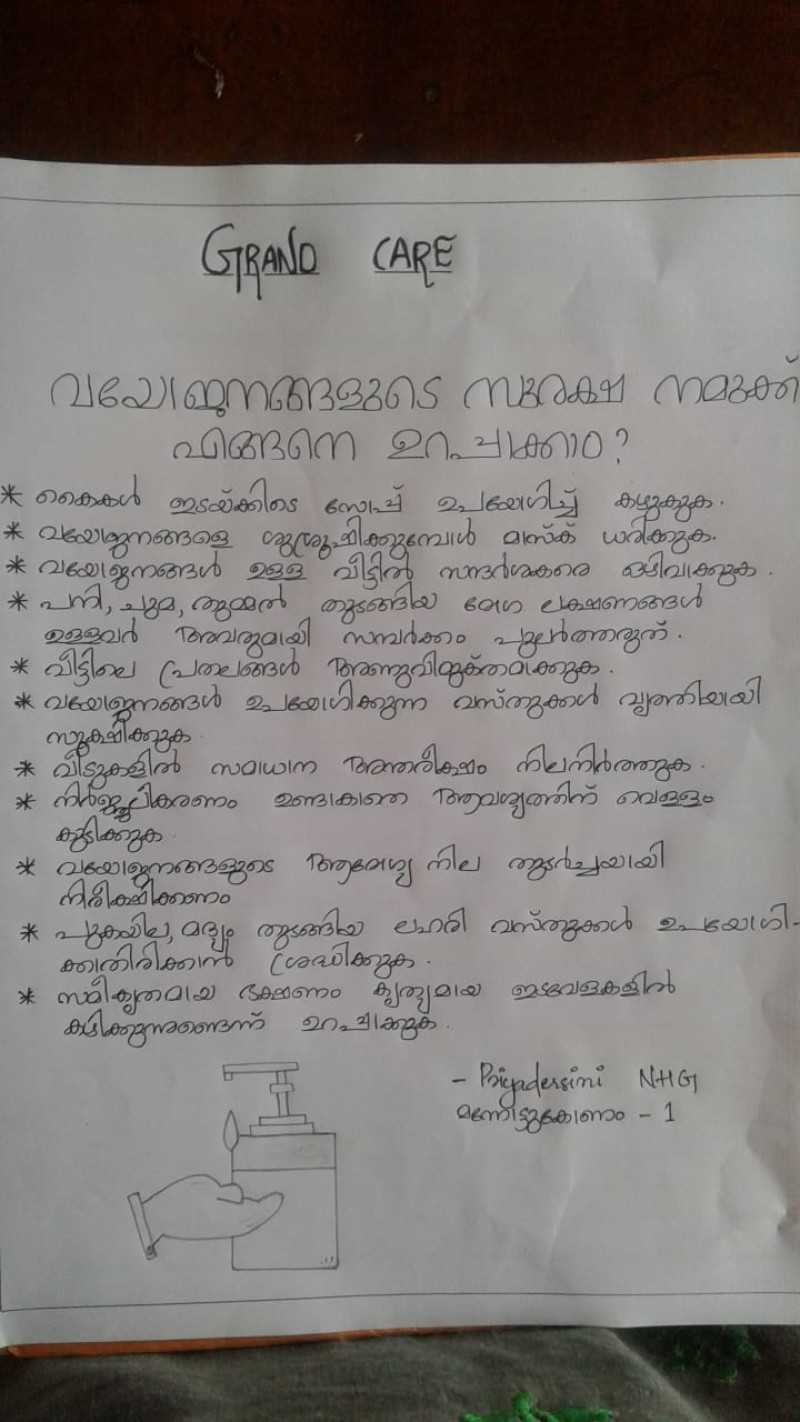 GRAND CARE
വയോജനങ്ങളുടെ സുരക്ഷ നമുക്ക്
എങ്ങനെ ഉറപ്പാക്കാം?
* കൈകൾ ഇടയ്ക്കിടെ സോപ്പ് ഉപയോഗിച്ച് കഴുകുക.
* വയോജനങ്ങളെ ശുശ്രൂഷിക്കുമ്പോൾ മാസ്ക് ധരിക്കുക.
* വയോജനങ്ങൾ ഉള്ള വീട്ടിൽ സന്ദർശകരെ ഒഴിവാക്കുക.
* പനി, ചുമ, തുമ്മൽ തുടങ്ങിയ രോഗ ലക്ഷണങ്ങൾ
ഉള്ളവർ അവരുമായി സമ്പർക്കം പുലർത്തരുത്.
* വീട്ടിലെ പ്രതലങ്ങൾ അണുവിമുക്തമാക്കുക.
* വയോജനങ്ങൾ ഉപയോഗിക്കുന്ന വസ്തുക്കൾ വൃത്തിയായി
സൂക്ഷിക്കുക.
* വീടുകളിൽ സമാധാന അന്തരീക്ഷം നിലനിർത്തുക.
* നിർജ്ജലികരണം ഉണ്ടാകാതെ ആവശ്യത്തിന് വെള്ളം
കുടിക്കുക.
* വയോജനങ്ങളുടെ ആരോഗ്യ നില തുടർച്ചയായി
നിരീക്ഷിക്കണം
* പുകയില, മദ്യം തുടങ്ങിയ ലഹരി വസ്തുക്കൾ ഉപയോഗി-
ക്കാതിരിക്കാൻ ശ്രദ്ധിക്കുക.
* സമീകൃതമായ ഭക്ഷണം കൃത്യമായ ഇടവേളകളിൽ
കഴിക്കുന്നുണ്ടെന്ന് ഉറപ്പാക്കുക.
- Priyadersini NHG
മന്നോട്ടുകോണം - 1